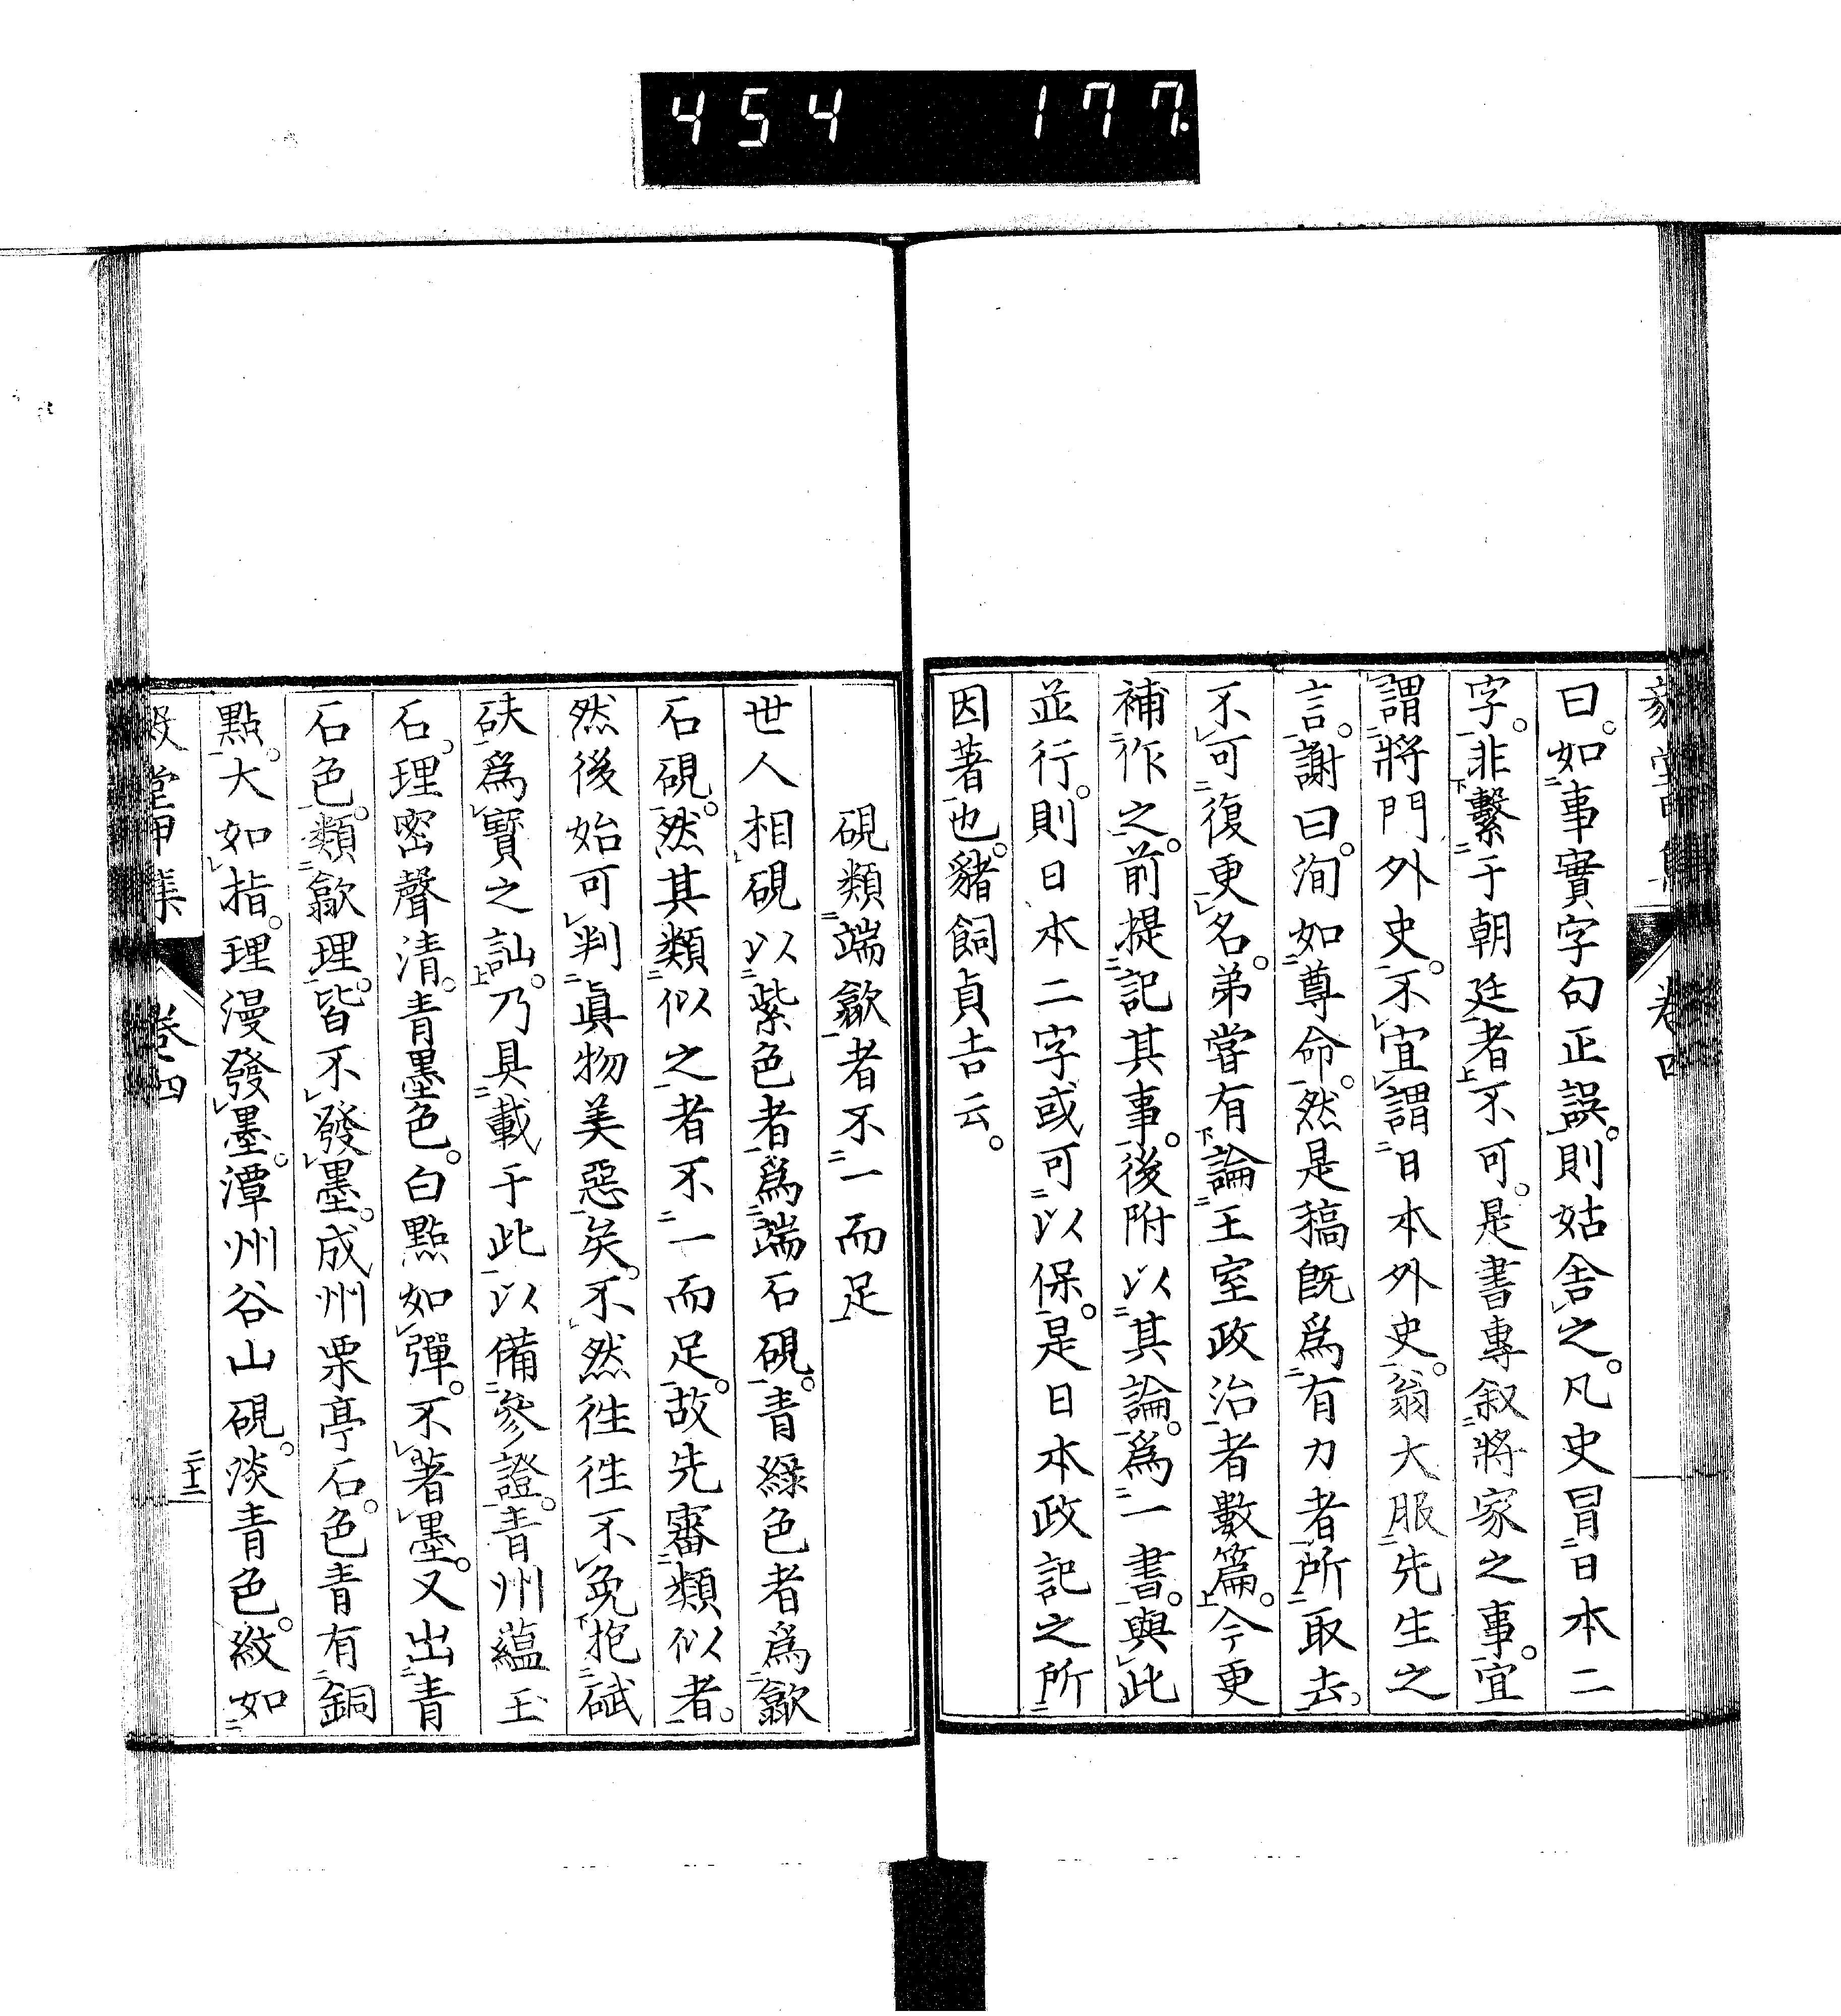 454 177.
曰。如事實字句正誤。則姑舍之。凡史冒日本二
字。非繫于朝廷者不可。是書專叙將家之事。宜
謂將門外史。不宜謂日本外史。翁大服先生之
言。謝曰。洵如尊命。然是稿既爲有力者所取去。
不可復更名。弟嘗有論王室政治者數篇。今更
補作之。前提記其事。後附以其論。爲一書。與此
並行。則日本二字或可以保。是日本政記之所
因著也。豬飼貞吉云。
硯類端歙者不一而足
世人相硯以紫色者爲端石硯。青綠色者爲歙
石硯。然其類似之者不一而足。故先審類似者。
然後始可判眞物美惡矣。不然徃徃不免抱碔
砆爲寳之訕。乃具載于此以備參證。青州蘊玉
石。理密聲清。青墨色。白點如彈。不著墨。又出青
石色。類歙理。皆不發墨。成州栗亭石。色青有銅
點。大如指。理漫發墨。潭州谷山硯。淡青色。紋如
堂甲集
卷四
二十二